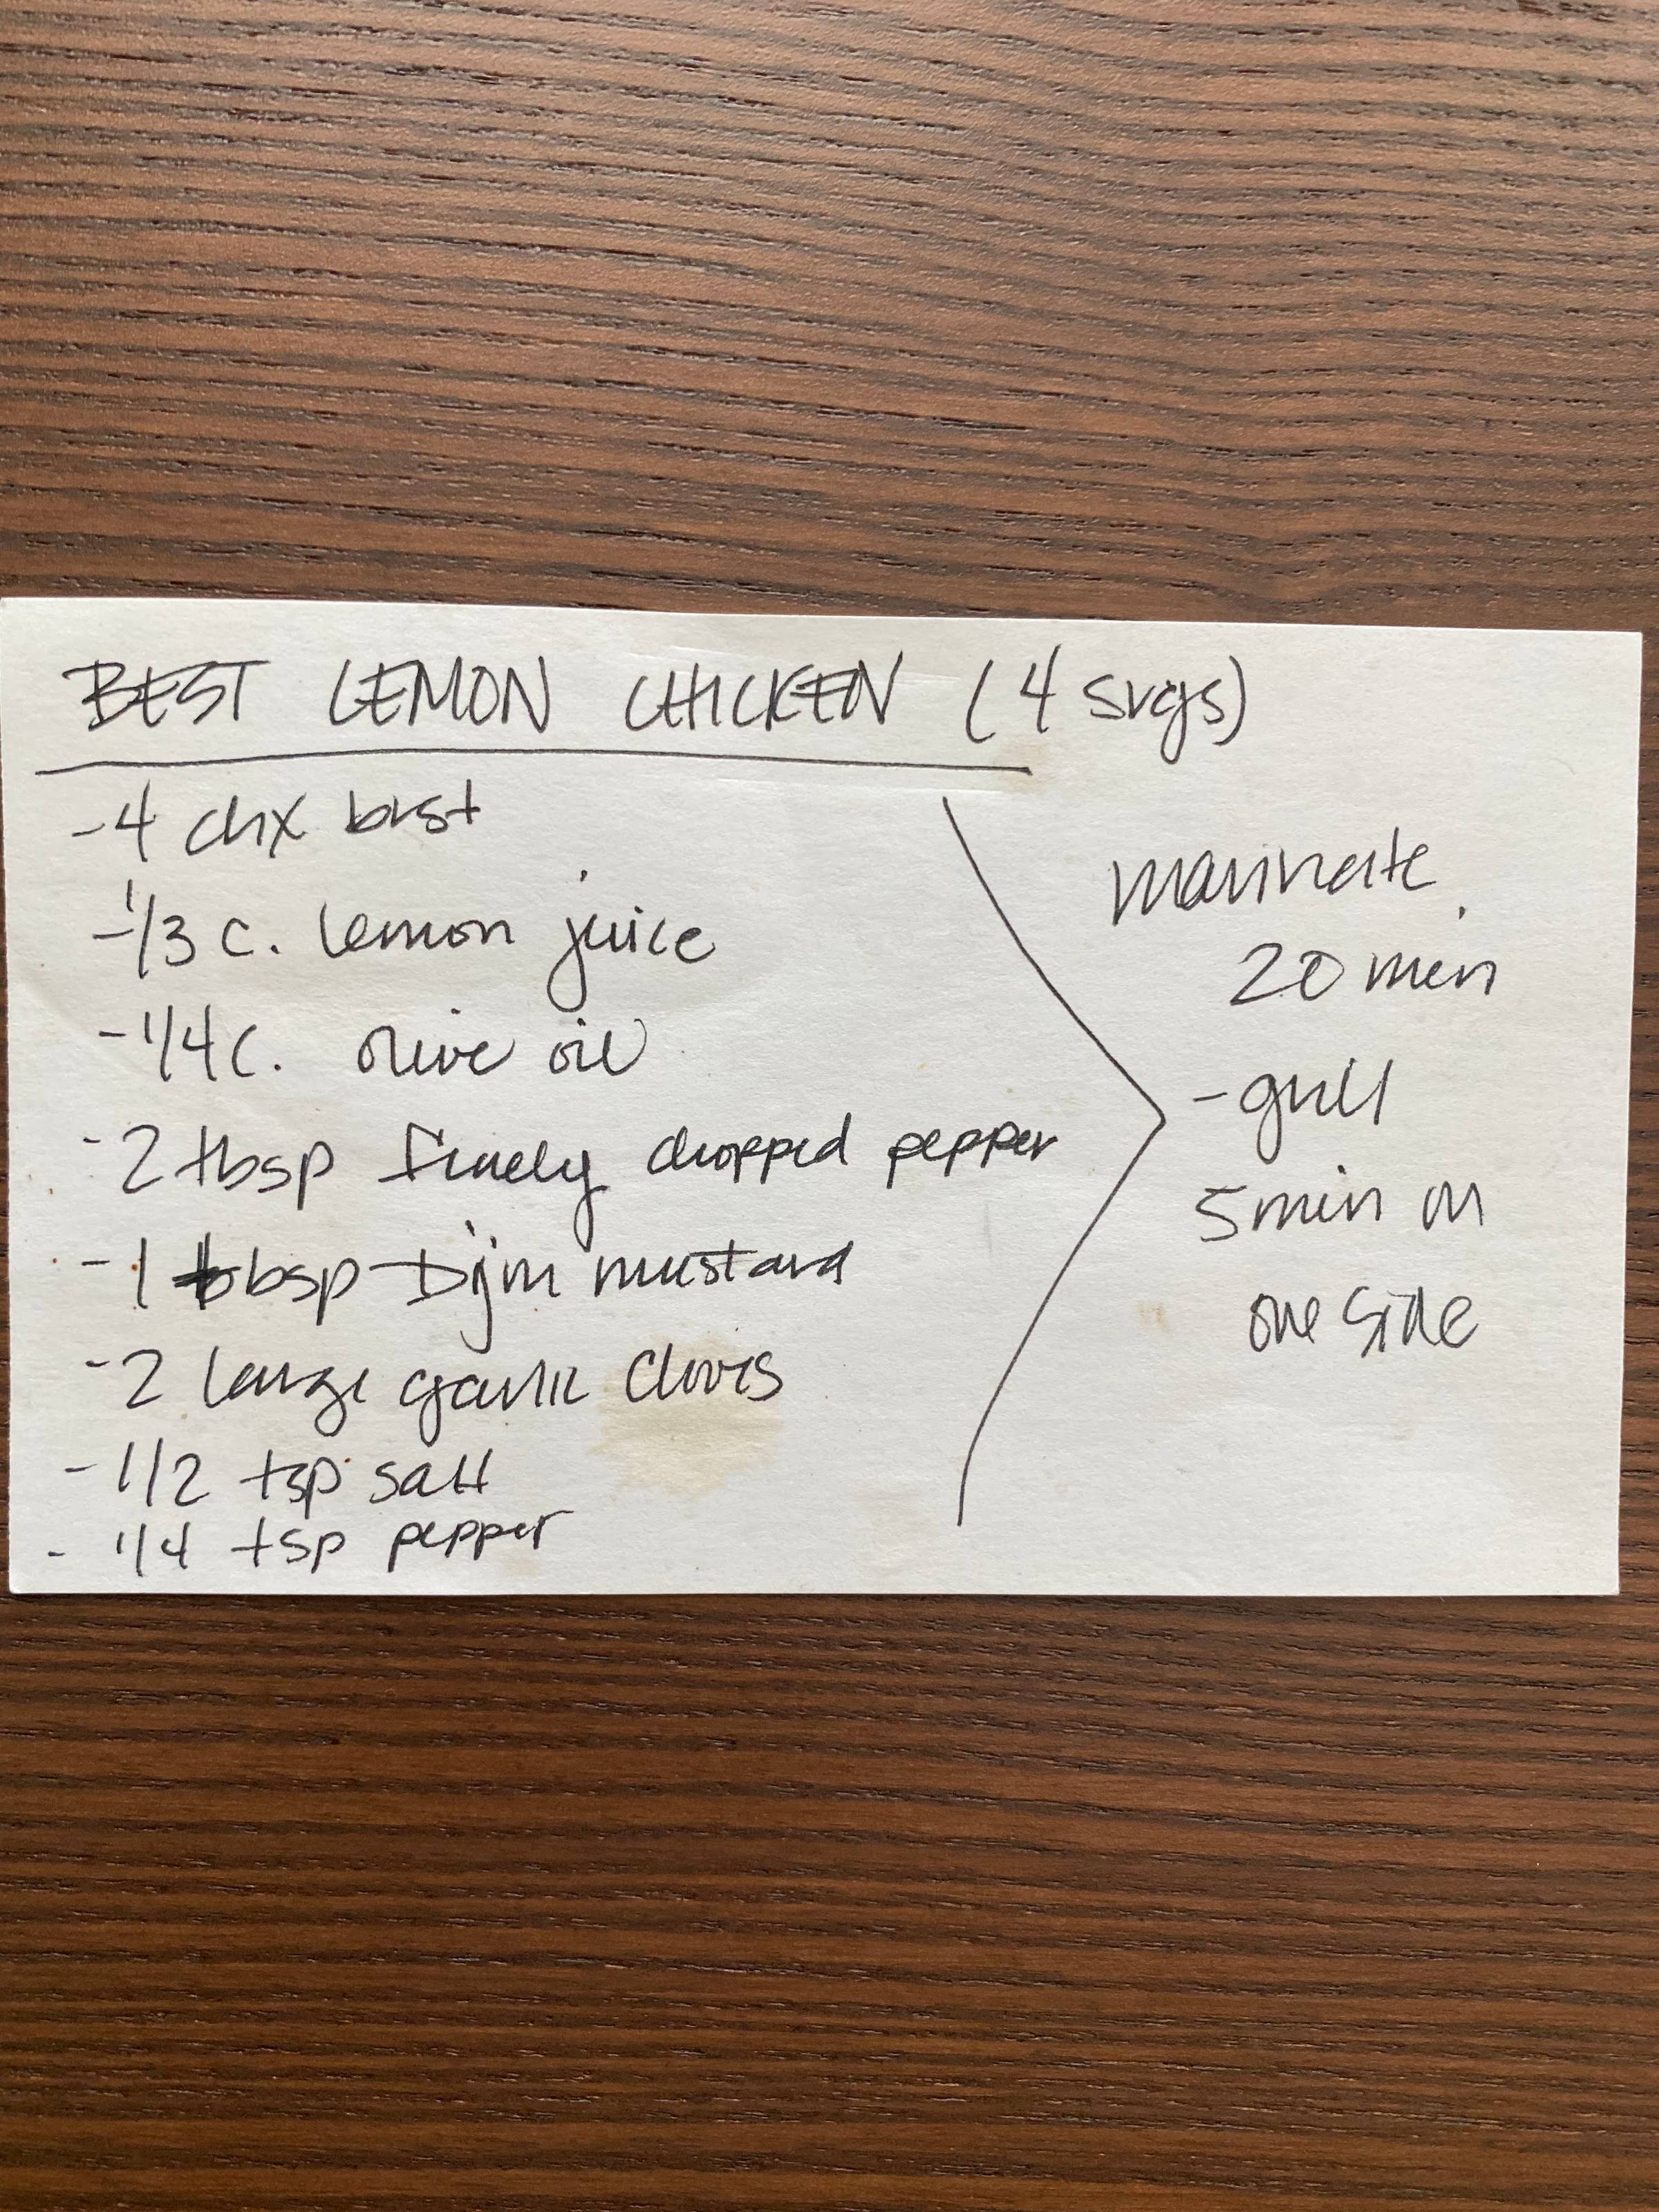 BEST LEMON CHICKEN (4 svgs)
-4 chx brst
-1/3 c. lemon juice
-1/4 c. olive oil
-2 tbsp finely chopped pepper
-1 tbsp Dijn mustard
-2 large garlic cloves
-1/2 tsp salt
- 1/4 tsp pepper
marinate
20 min
-grill
5 min on
one side